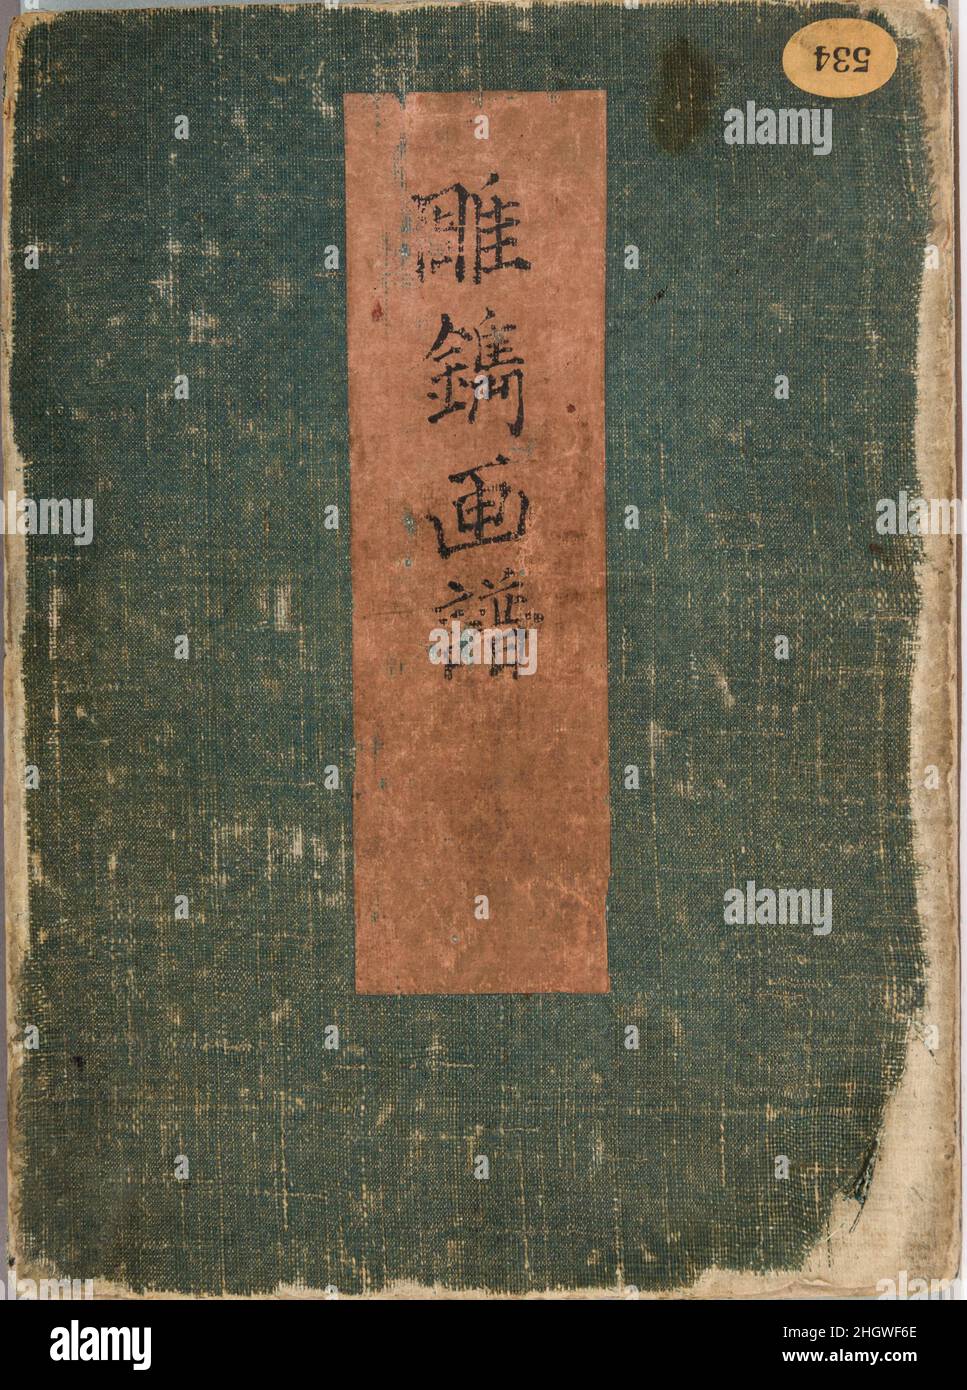 534
雕鐫画譜
alamy
alamy
alamy
alamy
alamy
Image ID: 2HGWF6E
www.alamy.com